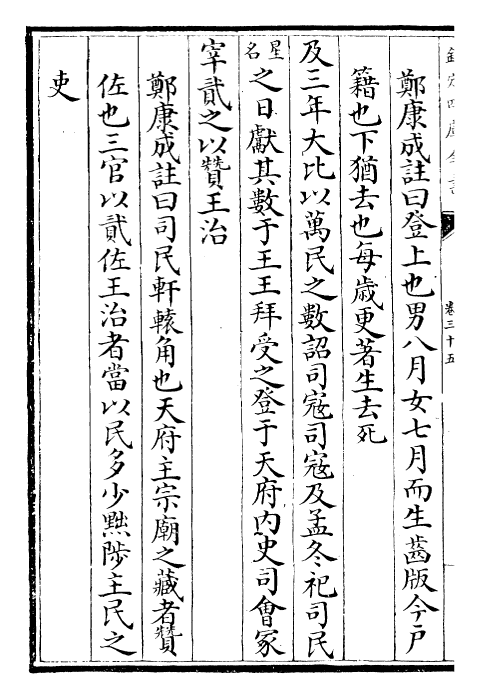 欽定四庫全書
卷三十五
鄭康成註曰登上也男八月女七月而生齒版今戶
籍也下猶去也每歲更著生去死
及三年大比以萬民之數詔司寇司寇及孟冬祀司民
星名之日獻其數于王王拜受之登于天府內史司會冢
宰貳之以贊王治
鄭康成註曰司民軒轅角也天府主宗廟之藏者贊
佐也三官以貳佐王治者當以民多少黜陟主民之
吏